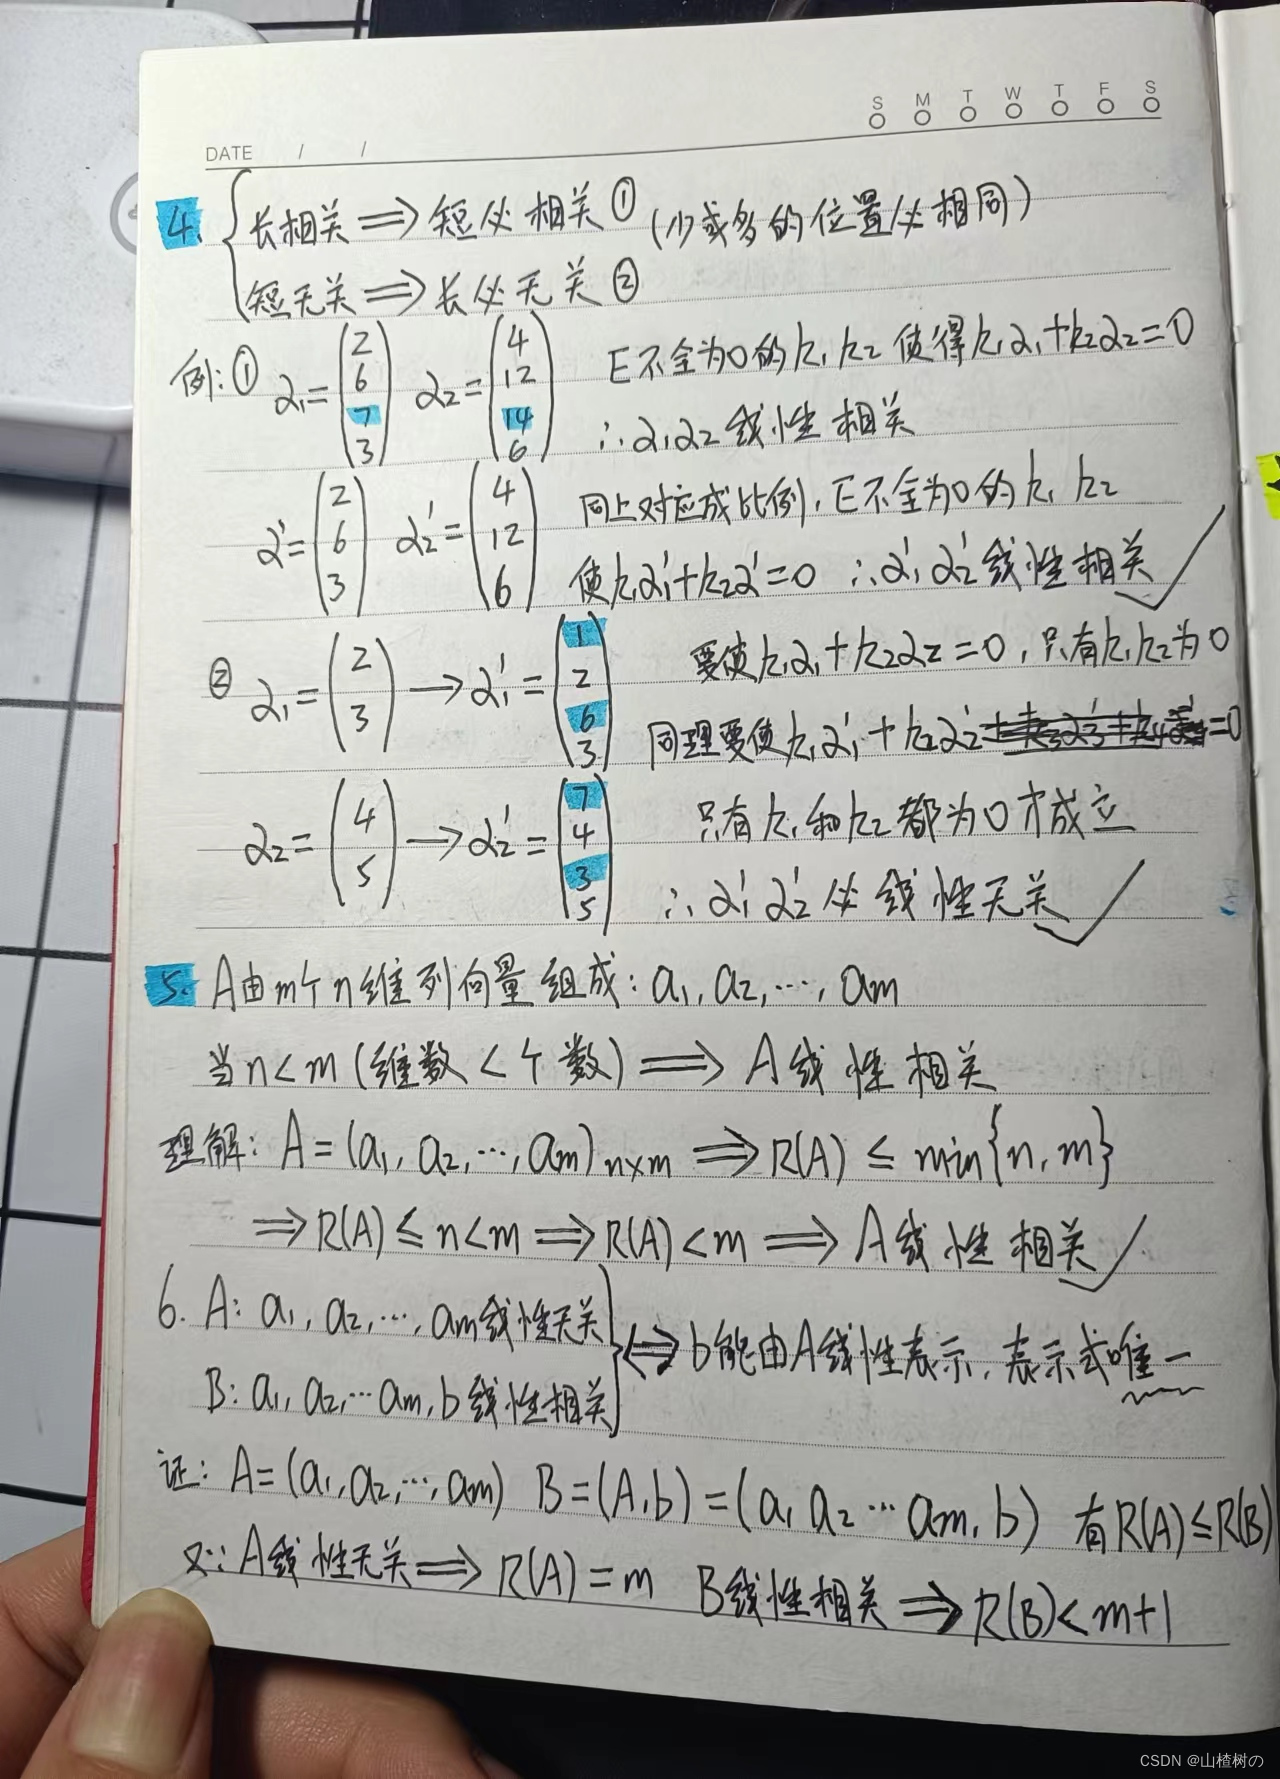 S M T W T F S
DATE / /
4. { 长相关 ⟹ 短必相关① (少或多的位置必相同)
短无关 ⟹ 长必无关②
例:① α₁=(2 6 7 3) α₂=(4 12 14 6) E不全为0的k₁ k₂ 使得k₁α₁+k₂α₂=0
∴α₁α₂线性相关
α'=(2 6 3) α₂'=(4 12 6) 同上对应成比例, E不全为0的k₁ k₂
使k₁α₁'+k₂α'=0 ∴α₁' α₂'线性相关 ✓
② α₁=(2 3) → α₁'=(1 2 6 3) 要使k₁α₁+k₂α₂=0, 只有k₁k₂为0
同理要使k₁α₁'+k₂α₂'=0
α₂=(4 5) → α₂'=(7 4 3 5) 只有k₁和k₂都为0才成立
∴α₁' α₂'必线性无关 ✓
5. A由m个n维列向量组成: a₁, a₂, …, am
当n<m (维数<个数) ⟹ A线性相关
理解: A=(a₁, a₂, …, am)n×m ⟹ R(A) ≤ min{n, m}
⟹ R(A) ≤ n<m ⟹ R(A)<m ⟹ A线性相关 ✓
6. A: a₁, a₂, …, am线性无关
B: a₁, a₂, … am, b线性相关 } ⟺ b能由A线性表示, 表示式唯一
证: A=(a₁, a₂, …, am) B=(A, b)=(a₁ a₂ … am, b) 有R(A)≤R(B)
又∵A线性无关 ⟹ R(A)=m B线性相关 ⟹ R(B)<m+1
CSDN @山楂树の